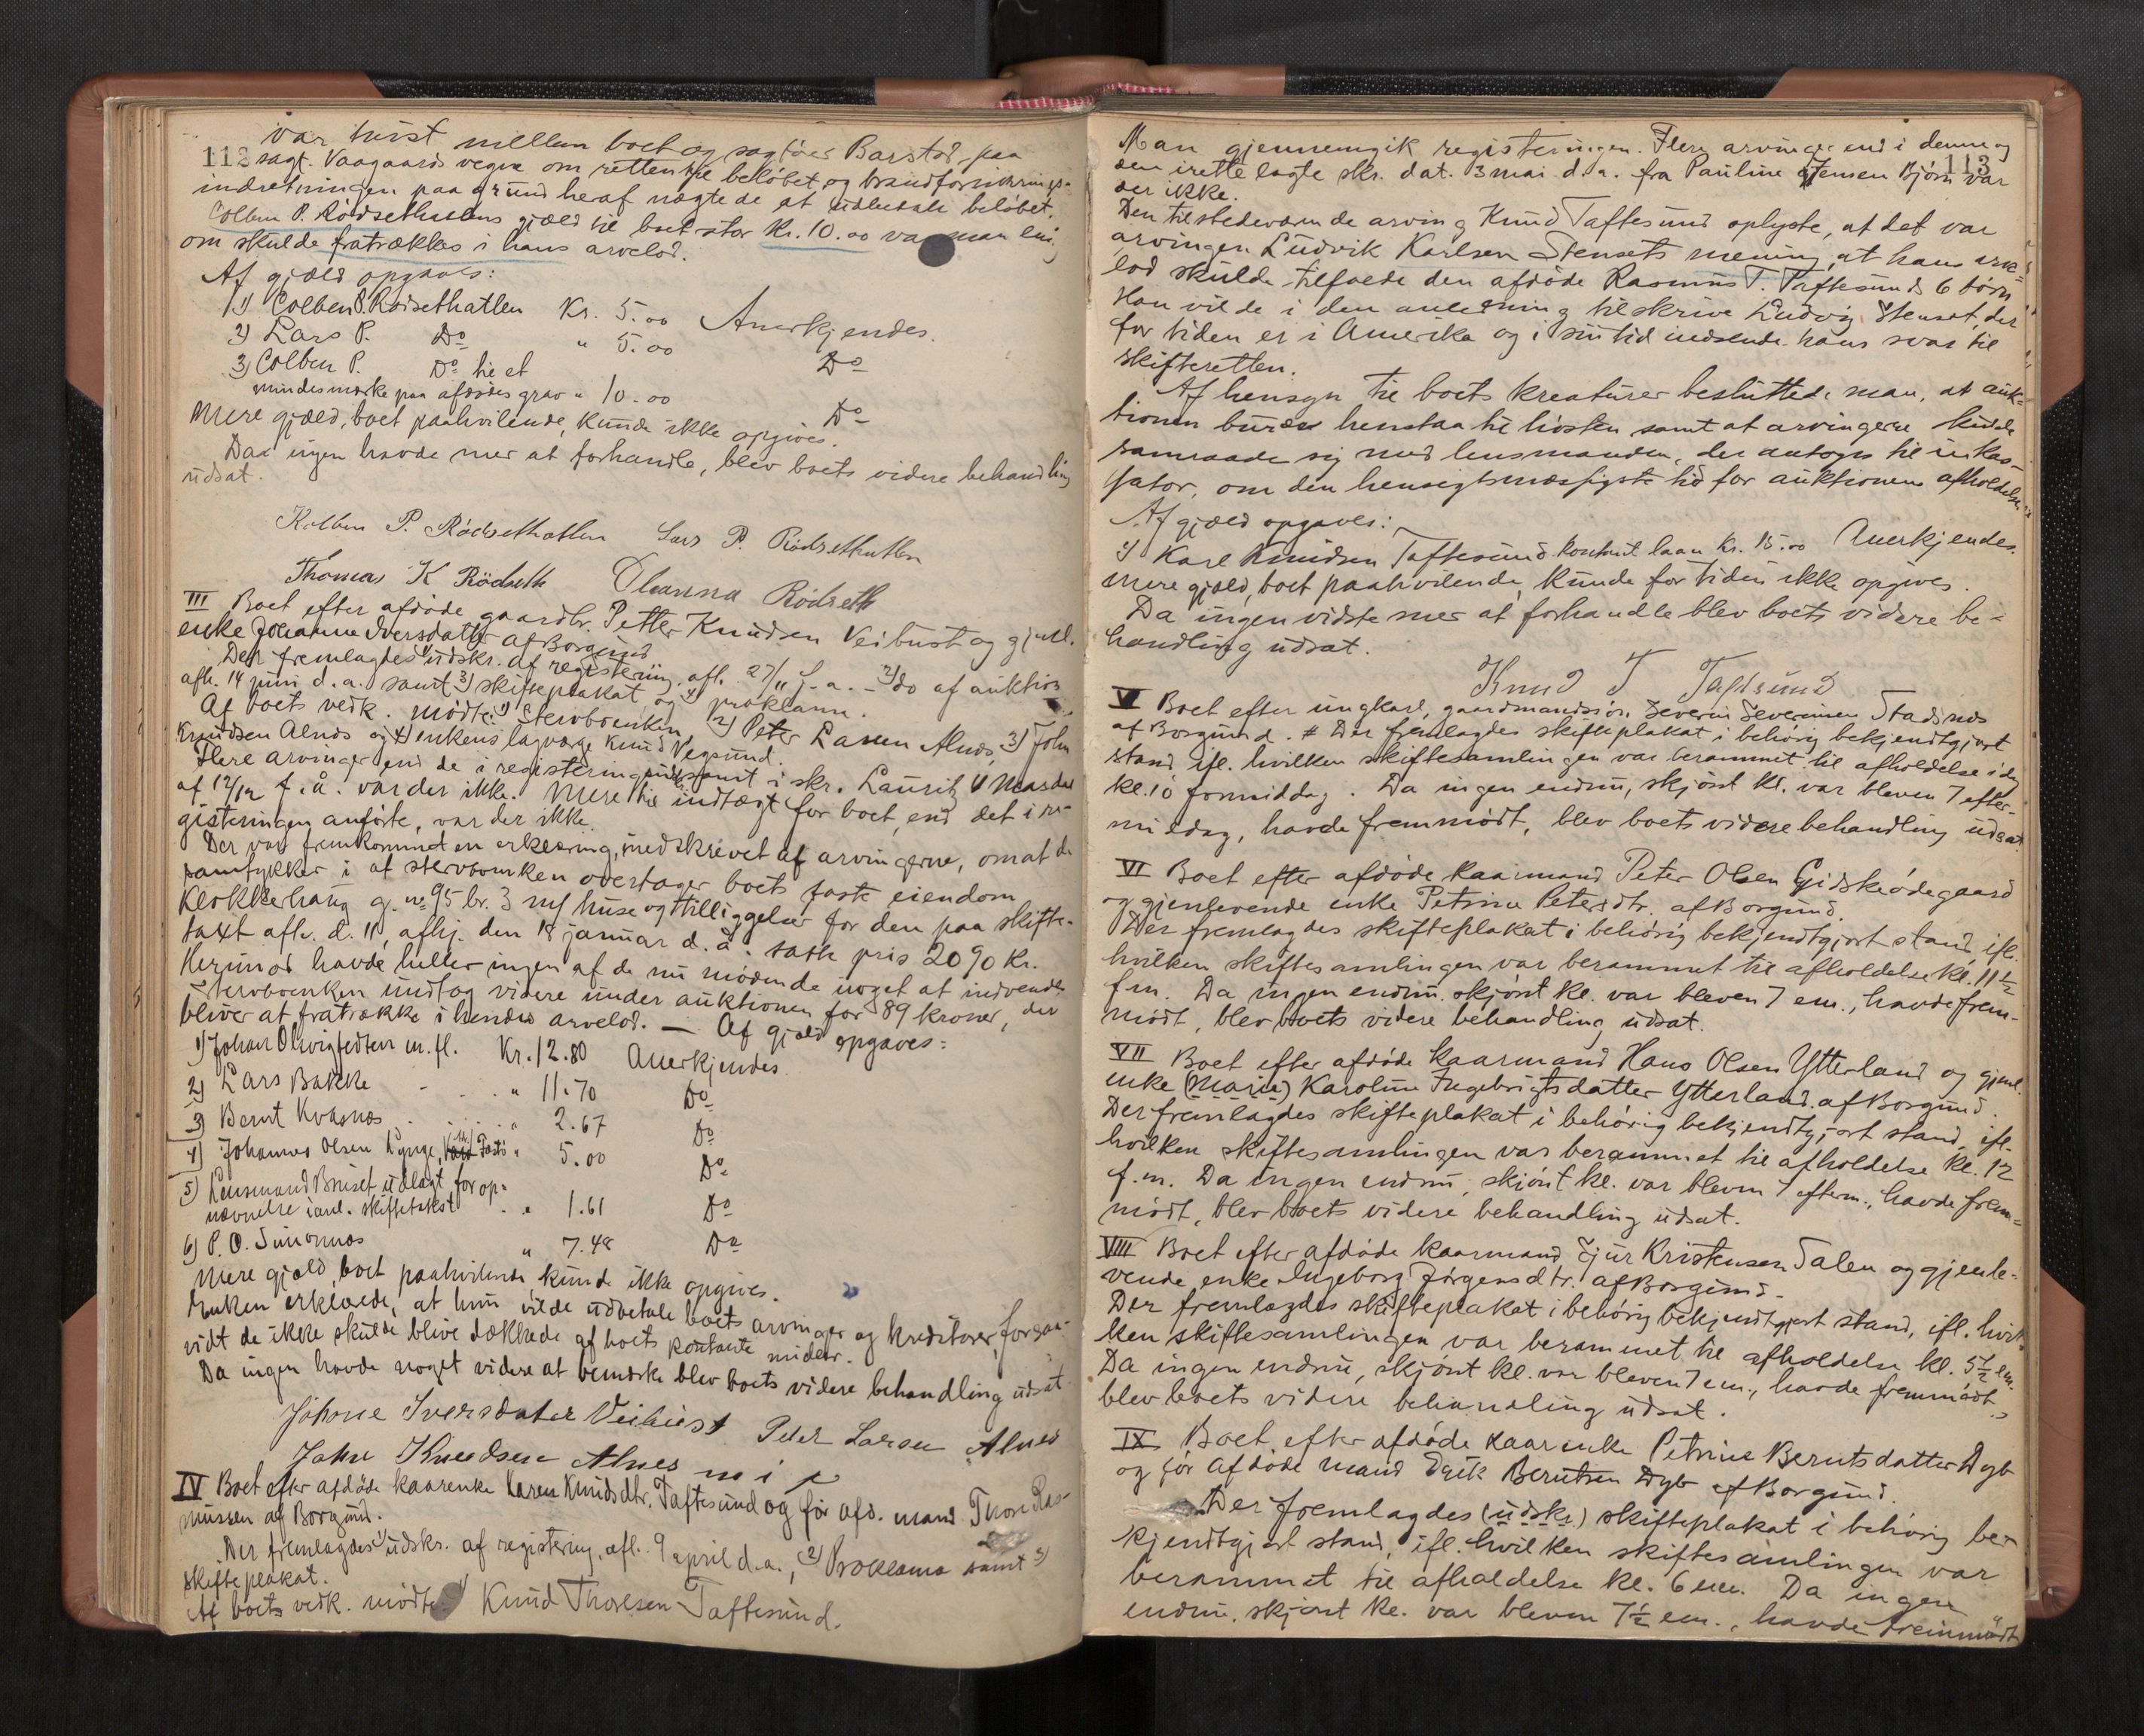 112
var tvist mellem boet og sagfører Barstad paa
sagf. Vaagaards vegne om retten til beløbet, og brandforsikrings-
indretningen paa grund heraf nægtede at udbetale beløbet.
Colben P. Rødsethatlens gjæld til boet stor Kr. 10.00 var man enig
om skulde fratrækkes i hans arvelod.
Af gjæld opgaves:
1) Colben P. Rødsethatlen Kr. 5.00 Anerkjendes.
2) Lars P. Do " 5.00 Do
3) Colben P. Do til et
mindesmærke paa afdødes grav " 10.00 Do
Mere gjæld, boet paahvilende, kunde ikke opgives.
Da ingen havde mer at forhandle, blev boets videre behandling
udsat.
Kolben P. Rødsethatlen Lars P. Rødsethatlen
Thomas K Rödseth Oleanna Rödseth
III Boet efter afdøde gaardbr. Petter Knudsen Veibust og gjenl.
enke Johanne Iversdatter af Borgund
Der fremlagdes 1) udskr. af registering, afh. 27/11 f. a. – 2) do af auktion
afh. 14 juni d. a. samt 3) skifteplakat og 4) proklama.
Af boets vedk. mødte: 1) Stervboenken, 2) Peter Larsen Alnæs, 3) John
Knudsen Alnæs og 4) enkens lagværge Knud Vegsund.
Flere arvinger end de i registeringen samt i skr. Lauritz
af 12/12 f. å. var der ikke. Mere til indtægt for boet, end det i re-
gisteringen anførte, var der ikke.
Der var fremkommet en erklæring, underskrevet af arvingerne, om at de
samtykker i at stervboenken overtager boets faste eiendom
Klokkerhaug g. no 95 br. 3 m/ huse og tilliggelser for den paa skifte-
taxt afh. d. 11, afhj. den 18 januar d. a. satte pris 2090 Kr.
Herimod havde heller ingen af de nu mødende noget at indvende.
Stervboenken undtog videre under auktionen for 89 kroner, der
bliver at fratrække i hendes arvelod. — Af gjæld opgaves:
1) Johan m. fl. Kr. 12.80 Anerkjendes.
2) Lars Bakke " 11.70 Do
3) Bernt Kvasnes " 2.67 Do
4) Johannes Olsen Lynge, " 5.00 Do
5) Lensmand Bruset udlagt for op-
nævnelse i anl. skiftetakst " 1.61 Do
6) P. O. Simonnæs " 7.48 Do
Mere gjæld, boet paahvilende kunde ikke opgives.
Enken erklærede, at hun vilde udbetale boets arvinger og kreditorer, forsaa-
vidt de ikke skulde blive dækkede af boets kontante midler.
Da ingen havde noget videre at bemærke blev boets videre behandling udsat
Johane Iversdater Veibust Peter Larsen Alnes
John Knudsen Alnes m i p
IV Boet efter afdøde kaarenke Karen Knudsdtr. Taftesund og før afd. mand Thore Ras-
mussen af Borgund.
Der fremlagdes 1) udskr. af registering, afh. 9 april d. a., 2) Proklama samt 3)
skifteplakat.
Af boets vedk. mødte 1) Knud Thoresen Taftesund.
113
Man gjennemgik registeringen. Flere arvinger end i denne og
den irettelagte skr. dat. 3 mai d. a. fra Pauline Jensen Bjørn var
der ikke.
Den tilstedeværende arving Knud Taftesund oplyste, at det var
arvingen Ludvik Karlsen Stensets mening, at hans arve-
lod skulde tilfalde den afdøde Rasmus T. Taftesunds 6 børn
Han vilde i den anledning tilskrive Ludvig Stenset, der
for tiden er i Amerika og i sin tid indsende hans svar til
skifteretten.
Af hensyn til boets kreaturer besluttede man, at auk-
tionen burde henstaa til høsten samt at arvingerne skulde
samraade sig med lensmanden, der antoges til inkas-
sator, om den hensigtsmæssigste tid for auktionens afholdelse
Af gjæld opgaves:
1) Karl Knudsen Taftesund kontant laan Kr. 15.00 Anerkjendes.
Mere gjæld, boet paahvilende, kunde for tiden ikke opgives.
Da ingen vidste mer at forhandle blev boets videre be-
handling udsat.
Knud T Taftsund
V Boet efter ungkarl, gaardmandssøn Severin Severinsen Stadsnes
af Borgund. # Der fremlagdes skifteplakat i behørig bekjendtgjort
stand ifl. hvilken skiftesamlingen var berammet til afholdelse idag
kl. 10 formiddag. Da ingen endnu, skjønt kl. var bleven 7 efter-
middag, havde fremmødt, blev boets videre behandling udsat
VI Boet efter afdøde kaarmand Peter Olsen Gidskeødegaard
og gjenlevende enke Petrine Petersdtr. af Borgund.
Der fremlagdes skifteplakat i behørig bekjendtgjort stand, ifl.
hvilken skiftesamlingen var berammet til afholdelse kl. 11½
fm. Da ingen endnu, skjønt kl. var bleven 7 em., havde frem-
mødt, blev boets videre behandling udsat.
VII Boet efter afdøde kaarmand Hans Olsen Ytterland og gjenl.
enke (Marie) Karoline Ingebrigtsdatter Ytterland af Borgund.
Der fremlagdes skifteplakat i behørig bekjendtgjort stand, ifl.
hvilken skiftesamlingen var berammet til afholdelse kl. 12
f.m. Da ingen endnu, skjønt kl. var bleven 7 efterm., havde frem-
mødt, blev boets videre behandling udsat.
VIII Boet efter afdøde kaarmand Sjur Kristensen Dalen og gjenle-
vende enke Ingeborg Jørgensdtr. af Borgund.
Der fremlagdes skifteplakat i behørig bekjendtgjort stand, ifl. hvil-
ken skiftesamlingen var berammet til afholdelse kl. 5½ em.
Da ingen endnu, skjønt kl. var bleven 7 em., havde fremmødt,
blev boets videre behandling udsat.
IX Boet efter afdøde kaarenke Petrine Berntsdatter Dyb
og før afdøde mand Erik Berntsen Dyb af Borgund.
Der fremlagdes (udskr.) skifteplakat i behørig be-
kjendtgjort stand, ifl. hvilken skiftesamlingen var
berammet til afholdelse kl. 6 em. Da ingen
endnu, skjønt kl. var bleven 7½ em., havde fremmødt